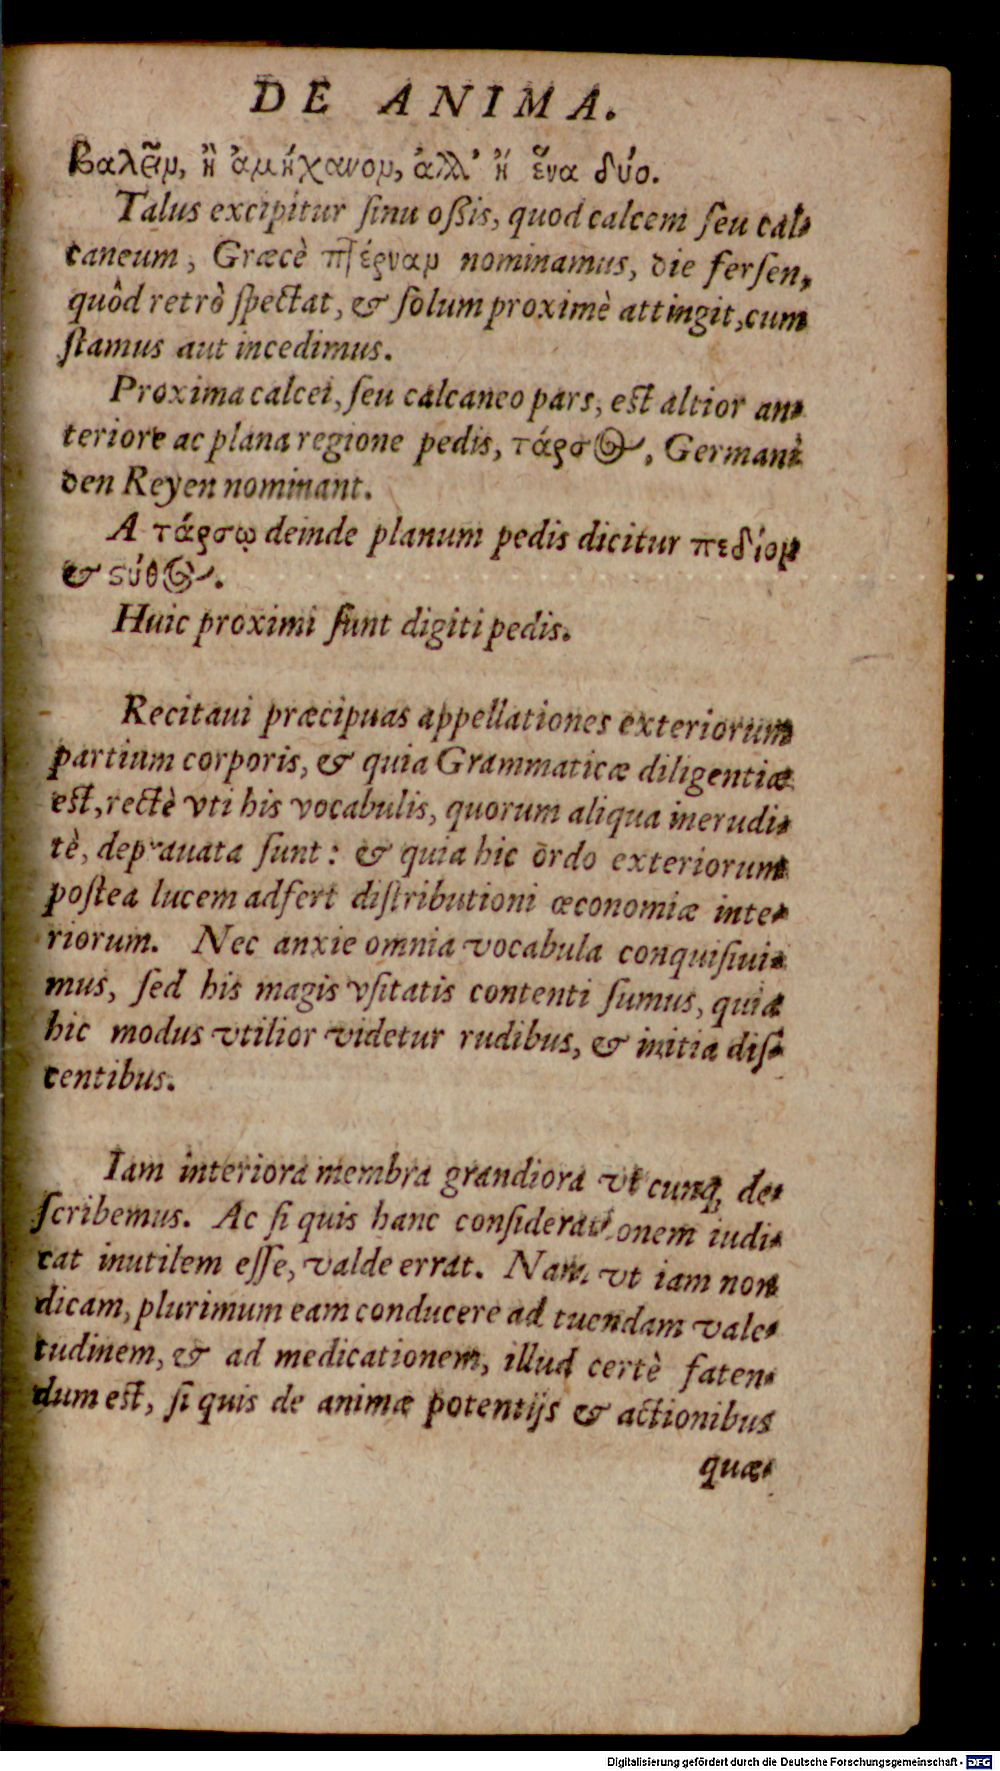 DE ANIMA.
βαλεῖν, ἢ ἀμήχανον, ἀλλ' ἢ ἕνα δύο.
Talus excipitur ſinu oßis, quod calcem ſeu cal-
caneum, Græcè πτέρναν nominamus, die ferſen,
quòd retrò ſpectat, & ſolum proximè attingit, cum
ſtamus aut incedimus.
Proxima calcei, ſeu calcaneo pars, eſt altior an-
teriore ac plana regione pedis, τάρσος, Germani
den Reyen nominant.
A τάρσῳ deinde planum pedis dicitur πεδίον
& στύθος.
Huic proximi ſunt digiti pedis.
Recitaui præcipuas appellationes exteriorum
partium corporis, & quia Grammaticæ diligentiæ
eſt, rectè vti his vocabulis, quorum aliqua inerudi-
tè, deprauata ſunt: & quia hic ordo exteriorum
poſtea lucem adfert diſtributioni œconomiæ inte-
riorum. Nec anxie omnia vocabula conquiſiui-
mus, ſed his magis vſitatis contenti ſumus, quia
hic modus vtilior videtur rudibus, & initia diſ-
centibus.
Iam interiora membra grandiora vt cunq; de-
ſcribemus. Ac ſi quis hanc conſiderationem iudi-
cat inutilem eſſe, valde errat. Nam vt iam non
dicam, plurimum eam conducere ad tuendam vale-
tudinem, & ad medicationem, illud certè faten-
dum eſt, ſi quis de animæ potentijs & actionibus
quæ-
Digitalisierung gefördert durch die Deutsche Forschungsgemeinschaft - DFG